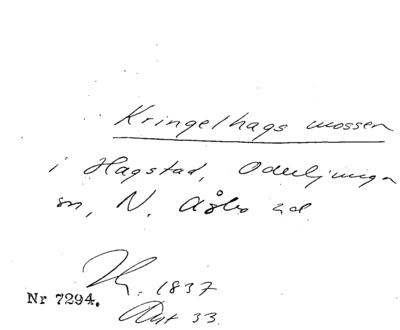 Kringelhags mossen
i Hagstad, Oderljunga
sn, N. Åsbo hd.
1837
Nr 7294.
33.